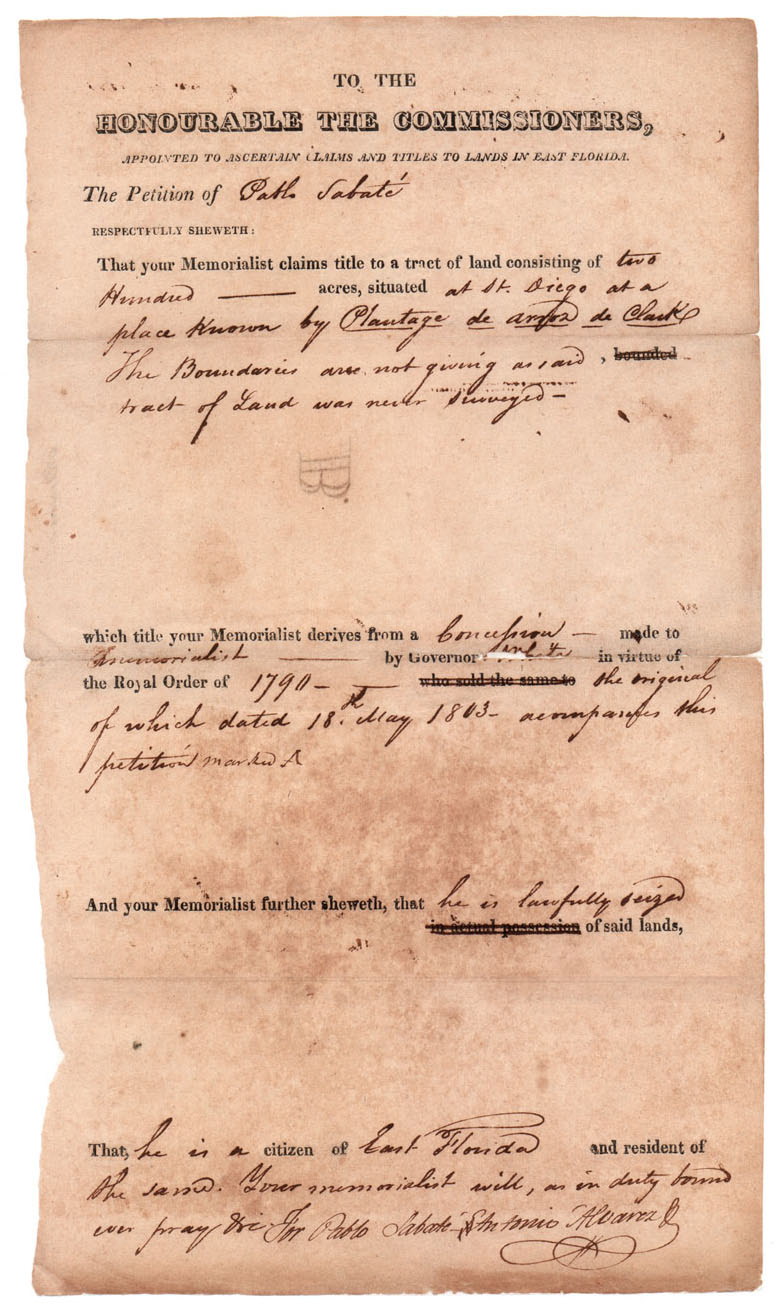 TO THE
HONOURABLE THE COMMISSIONERS,
APPOINTED TO ASCERTAIN CLAIMS AND TITLES TO LANDS IN EAST FLORIDA.
The Petition of Pablo Sabaté
RESPECTFULLY SHEWETH:
That your Memorialist claims title to a tract of land consisting of two
Hundred — acres, situated at St. Diego at a
place Known by Plantage de arroz de Clark
The Boundaries are not giving as said , bounded
tract of Land was never Surveyed —
which title your Memorialist derives from a Concession — made to
memorialist — by Governor White in virtue of
the Royal Order of 1790 — who sold the same to the original
of which dated 18th May 1803 — acompanies this
petition marked A
And your Memorialist further sheweth, that he is lawfully seized
in actual possession of said lands,
That, he is a citizen of East Florida and resident of
the same. Your memorialist will, as in duty bound
ever pray &c For Pablo Sabaté Antonio Alvarez